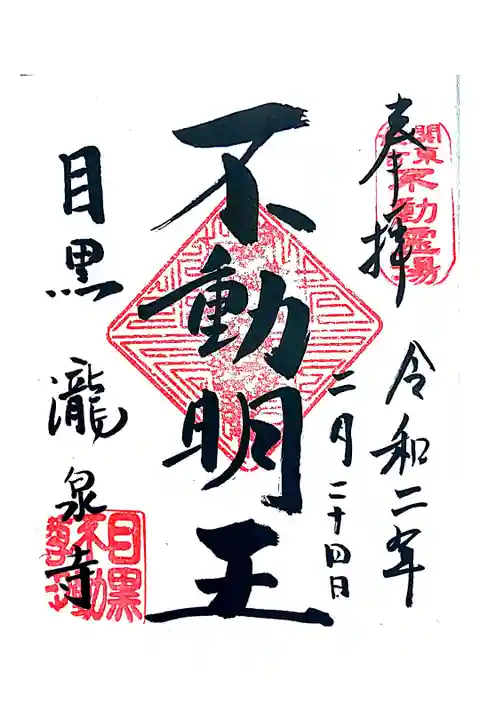 奉拝
関東
不動霊場
令和二年
二月二十四日
不動明王
目黒 瀧泉寺
目黒
不動